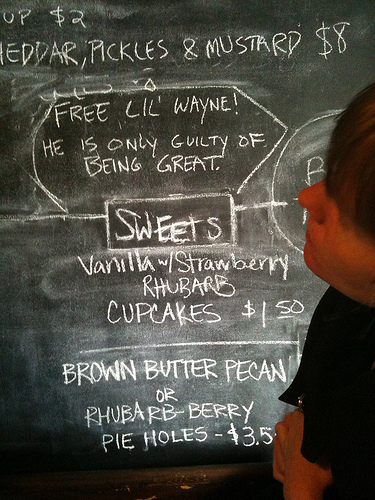 UP $2
HEDDAR, PICKLES & MUSTARD $8
FREE LIL' WAYNE!
HE IS ONLY GUILTY OF
BEING GREAT.
B
SWEETS
Vanilla w/Strawberry
RHUBARB
CUPCAKES $1 50
BROWN BUTTER PECAN
OR
RHUBARB-BERRY
PIE HOLES - $3.5